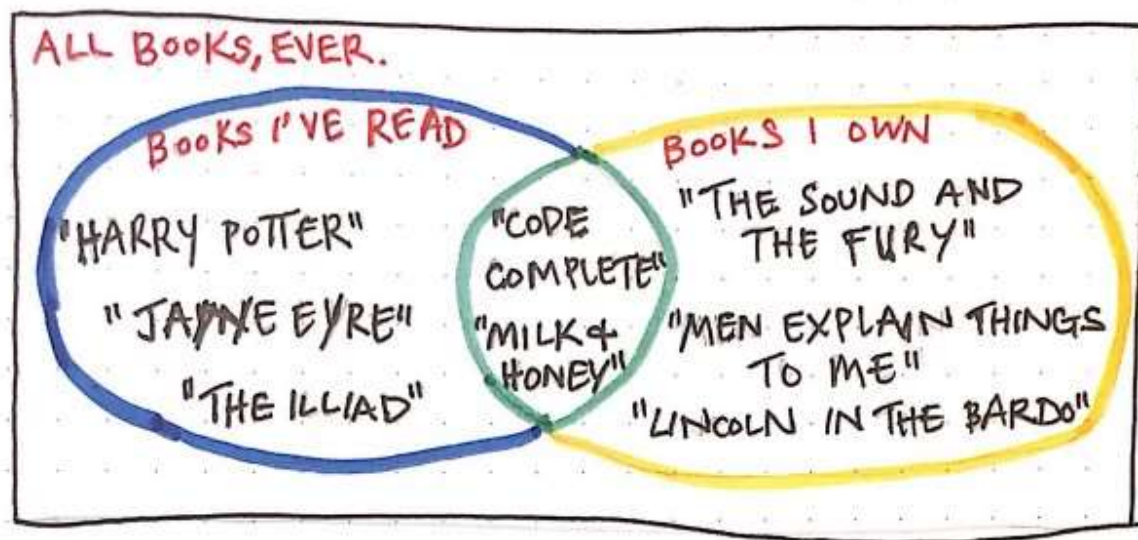 ALL BOOKS, EVER.
BOOKS I'VE READ
"HARRY POTTER"
"JAYNE EYRE"
"THE ILLIAD"
"CODE
COMPLETE"
"MILK &
HONEY"
BOOKS I OWN
"THE SOUND AND
THE FURY"
"MEN EXPLAIN THINGS
TO ME"
"LINCOLN IN THE BARDO"